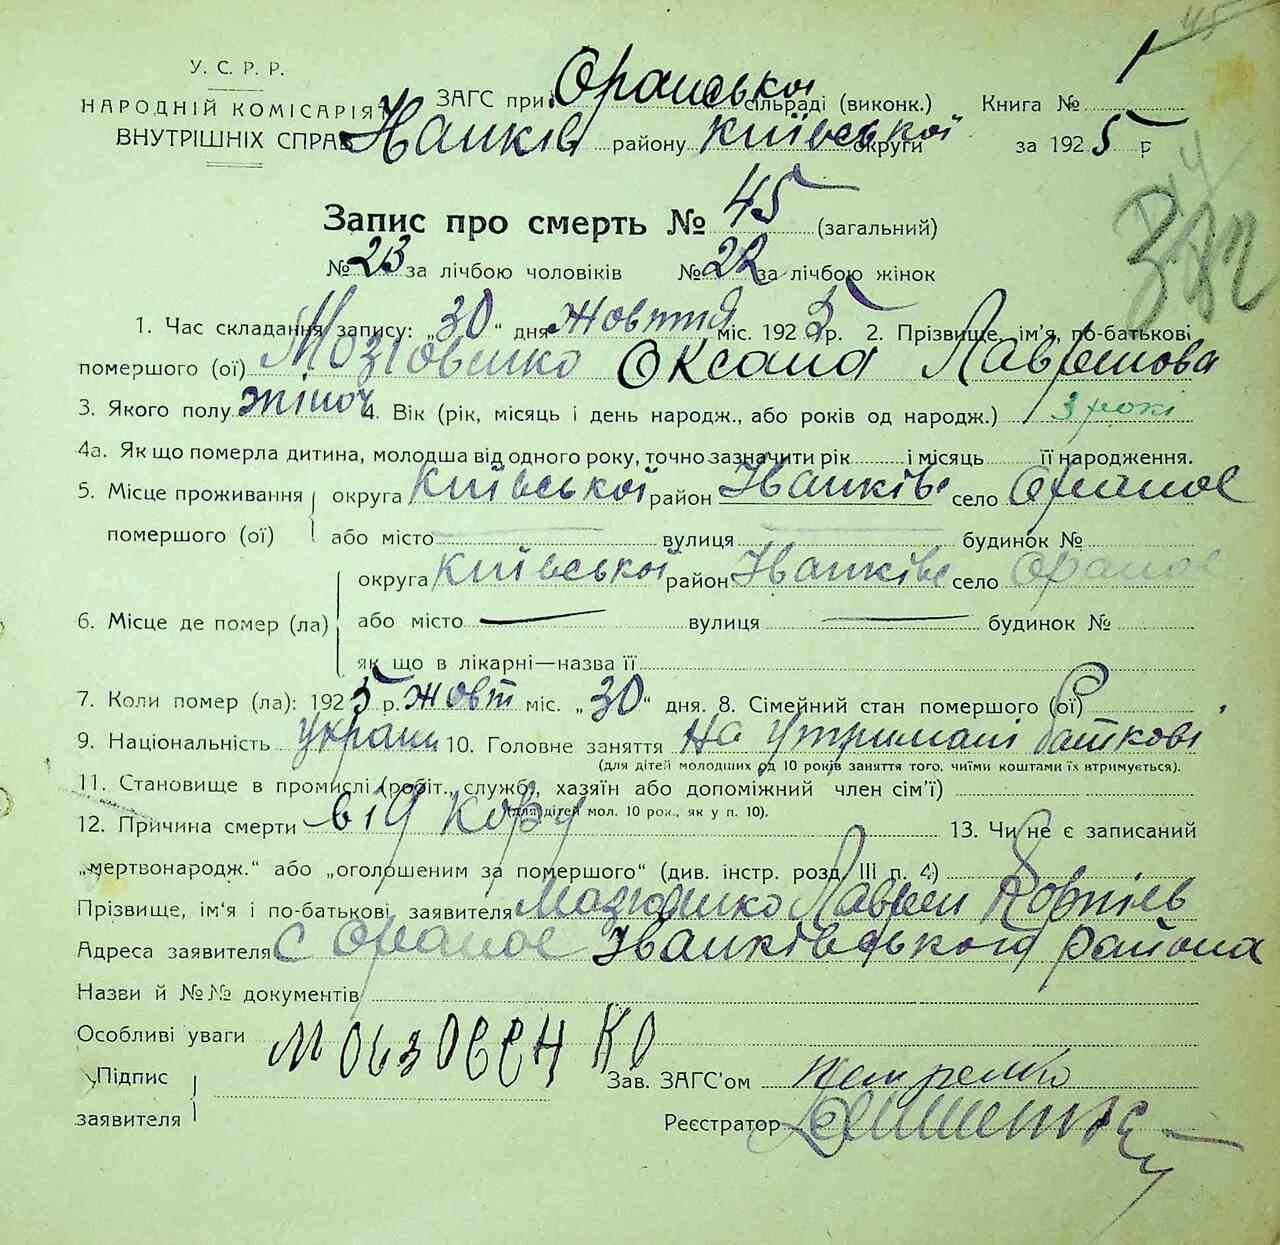 45
У. С. Р. Р.
НАРОДНІЙ КОМІСАРІЯТ
ВНУТРІШНІХ СПРАВ
ЗАГС при Оранської сільраді (виконк.) Книга № 1
Іванків району Київської округи за 1925 р
Запис про смерть № 45 (загальний)
№ 23 за лічбою чоловіків № 22 за лічбою жінок
1. Час складання запису: „30“ дня жовтня міс. 1925 р. 2. Прізвище, ім'я, по-батькові
помершого (ої) Мозговенко Оксана Лаврентова
3. Якого полу жіноч 4. Вік (рік, місяць і день народж., або років од народж.) 3 рокі
4а. Як що померла дитина, молодша від одного року, точно зазначити рік і місяць її народження.
5. Місце проживання помершого (ої) округа Київської район Іванківс село Ораное
або місто вулиця будинок №
6. Місце де помер (ла) округа Київської район Іванківс село Ораное
або місто — вулиця — будинок №
як що в лікарні—назва її
7. Коли помер (ла): 1925 р. жовт міс. „30“ дня. 8. Сімейний стан помершого (ої)
9. Національність україн 10. Головне заняття на утримані баткові
(для дітей молодших од 10 років заняття того, чиїми коштами їх втримується).
11. Становище в промислі (робіт., службо, хазяїн або допоміжний член сім'ї)
(для дітей мол. 10 рок., як у п. 10).
12. Причина смерти від кору 13. Чи не є записаний
„мертвонародж.“ або „оголошеним за помершого“ (див. інстр. розд. III п. 4)
Прізвище, ім'я і по-батькові заявителя Лаврен Корнієв
Адреса заявителя с Ораное Іванківського района
Назви й №№ документів
Особливі уваги
Підпис заявителя
Зав. ЗАГС'ом
Реєстратор